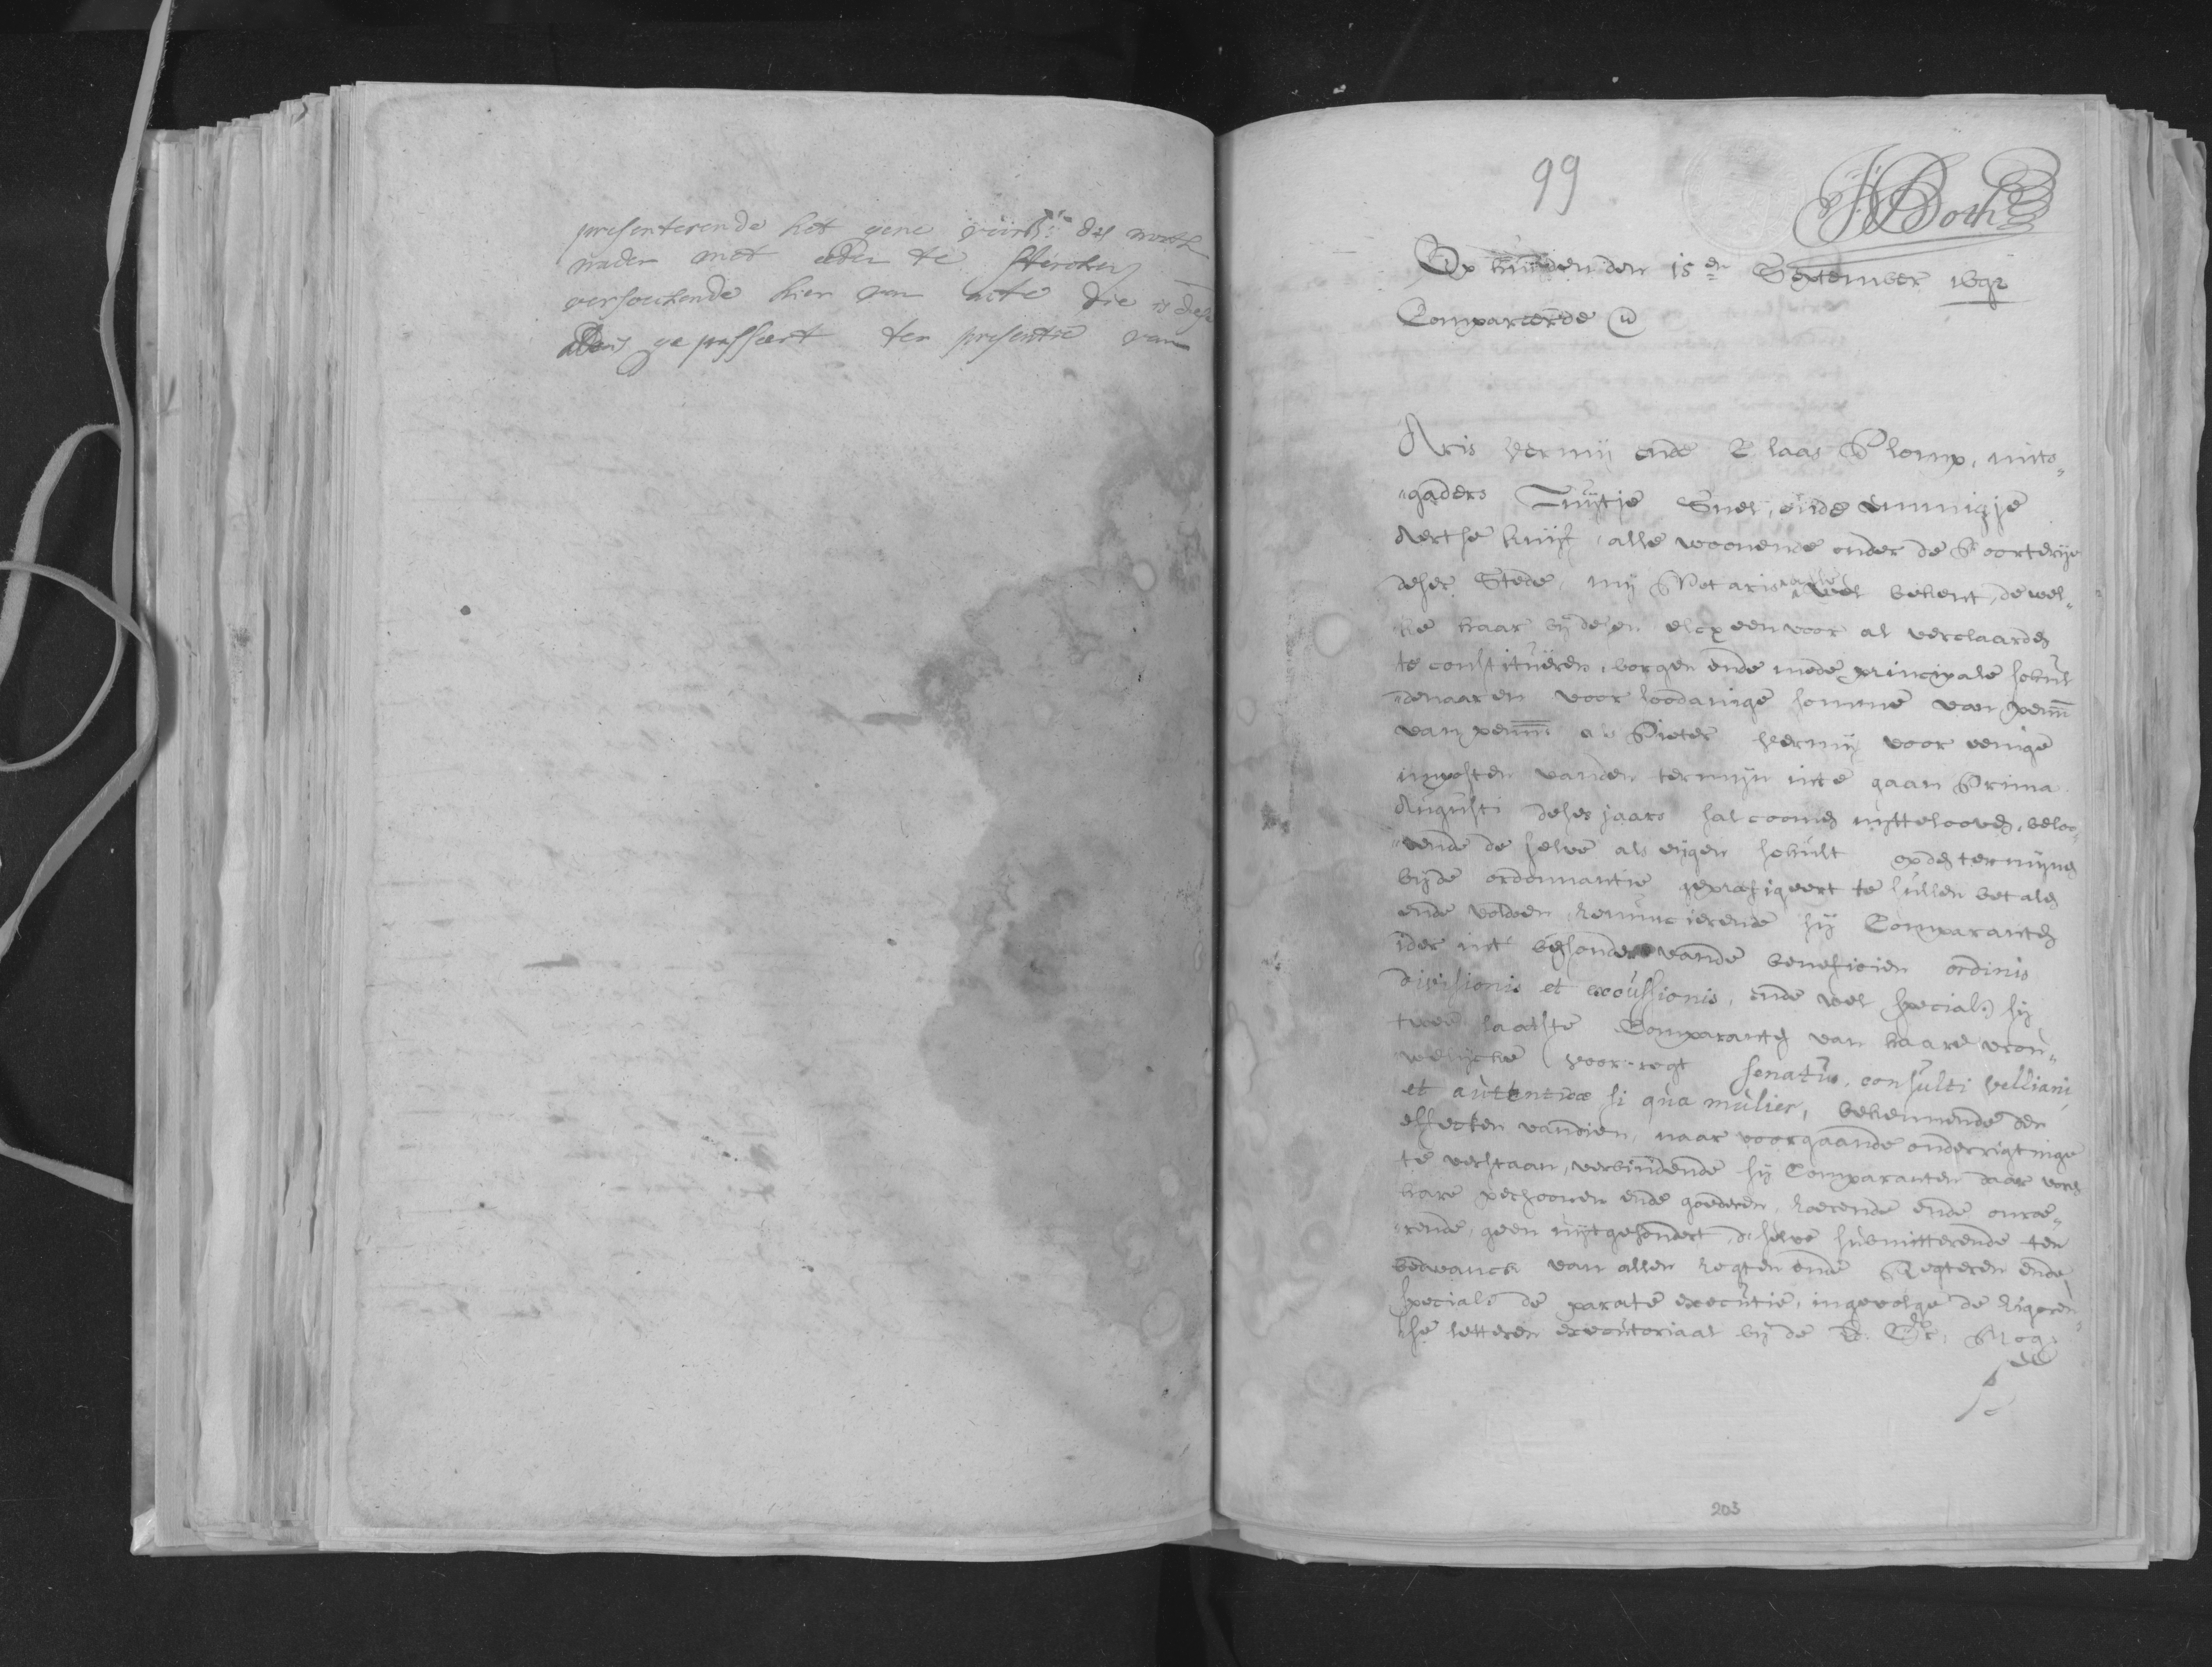 presenterende het gene voirs: des noots
nader met eede te stercken
versoeckende hier van acte die is dese
Aldus gepasseert ter presentie van
99
JBoth
Op huijden den 15en September 1692
Compareerde
Aris Vermij ende Claas Plomp, mits„
„gaders Luijtje Snel, ende Emmigje
Aertse Kuijf, alle woonende onder de Poorterije
deser Stede, mij Notaris alle wel bekent, dewel„
ke haar bij desen elcx een voor al verclaarden
te constitueren, borgen ende mede principale schul
„denaaren voor soodanige somme van penn
van penn als Pieter Vermij voor eenige
imposten vanden termijn inte gaan Prima
Augusti deses jaars sal coomen uijtteloven, beloo„
„vende de selve als eijgen schult op den termijnen
bijde ordonnantie geprefigeert te sullen betalen
ende voldoen, Renuncierende sij Comparanten
ider int besonder vande beneficien ordinis
divisionis et excussionis, ende wel special sij
twee laatste Comparanten van haare vrou„
welijcke voor-regt senatus, consulti velliani
et autentica si qua mulier, bekennende den
effecten vandien, naar voorgaande onderrigtinge
te verstaan, verbindende sij Comparanten daar voor
hare persoonen ende goederen, Roerende ende onroe„
„rende, geen uijtgesondert, deselve submitterende ten
bedwanck van allen Regten ende Regteren ende
speciale de parate executie, ingevolge de Rigoreu„
se letteren executoriaal bij de Ed. Gr. Mog.
203